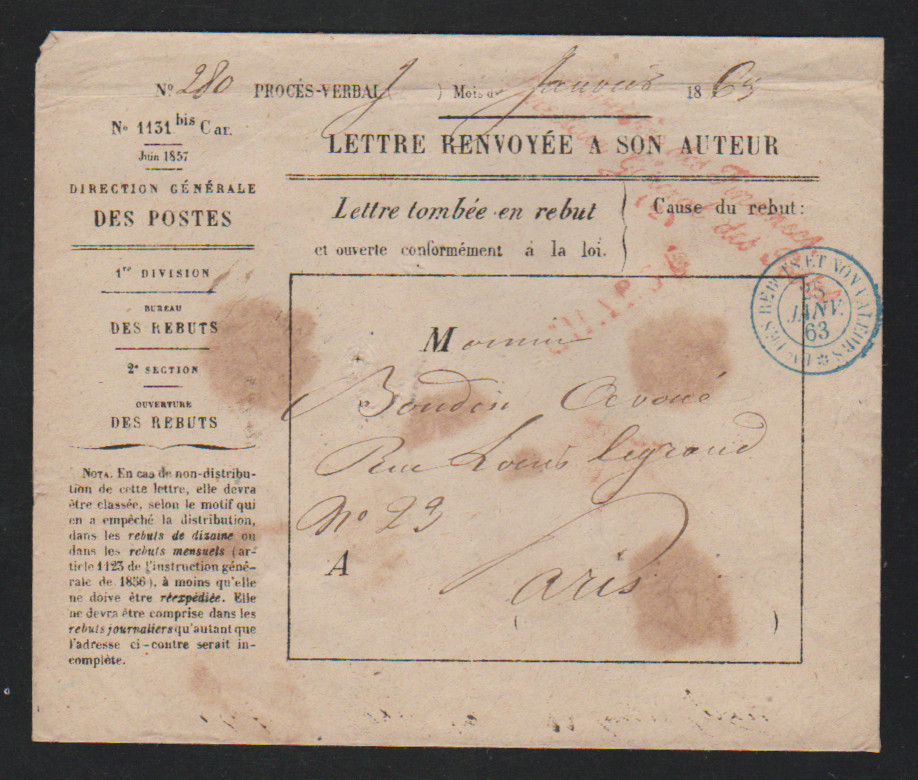 No 280 PROCÈS-VERBAL ( ) Mois de Janvier 1863
No 1131 bis Car.
Juin 1857
DIRECTION GÉNÉRALE
DES POSTES
1re DIVISION
BUREAU
DES REBUTS
2e SECTION
OUVERTURE
DES REBUTS
NOTA. En cas de non-distribu-
tion de cette lettre, elle devra
être classée, selon le motif qui
en a empêché la distribution,
dans les rebuts de dizaine ou
dans les rebuts mensuels (ar-
ticle 1123 de l'instruction géné-
rale de 1856), à moins qu'elle
ne doive être réexpédiée. Elle
ne devra être comprise dans les
rebuts journaliers qu'autant que
l'adresse ci-contre serait in-
complète.
LETTRE RENVOYÉE A SON AUTEUR
Lettre tombée en rebut
et ouverte conformément á la loi.
Cause du rebut:
Bau DES REBUTS ET NON VALEURS
25
JANV.
63
Monsieur
Boudin Avoué
Rue Louis legrand
No 23
A Paris
( )